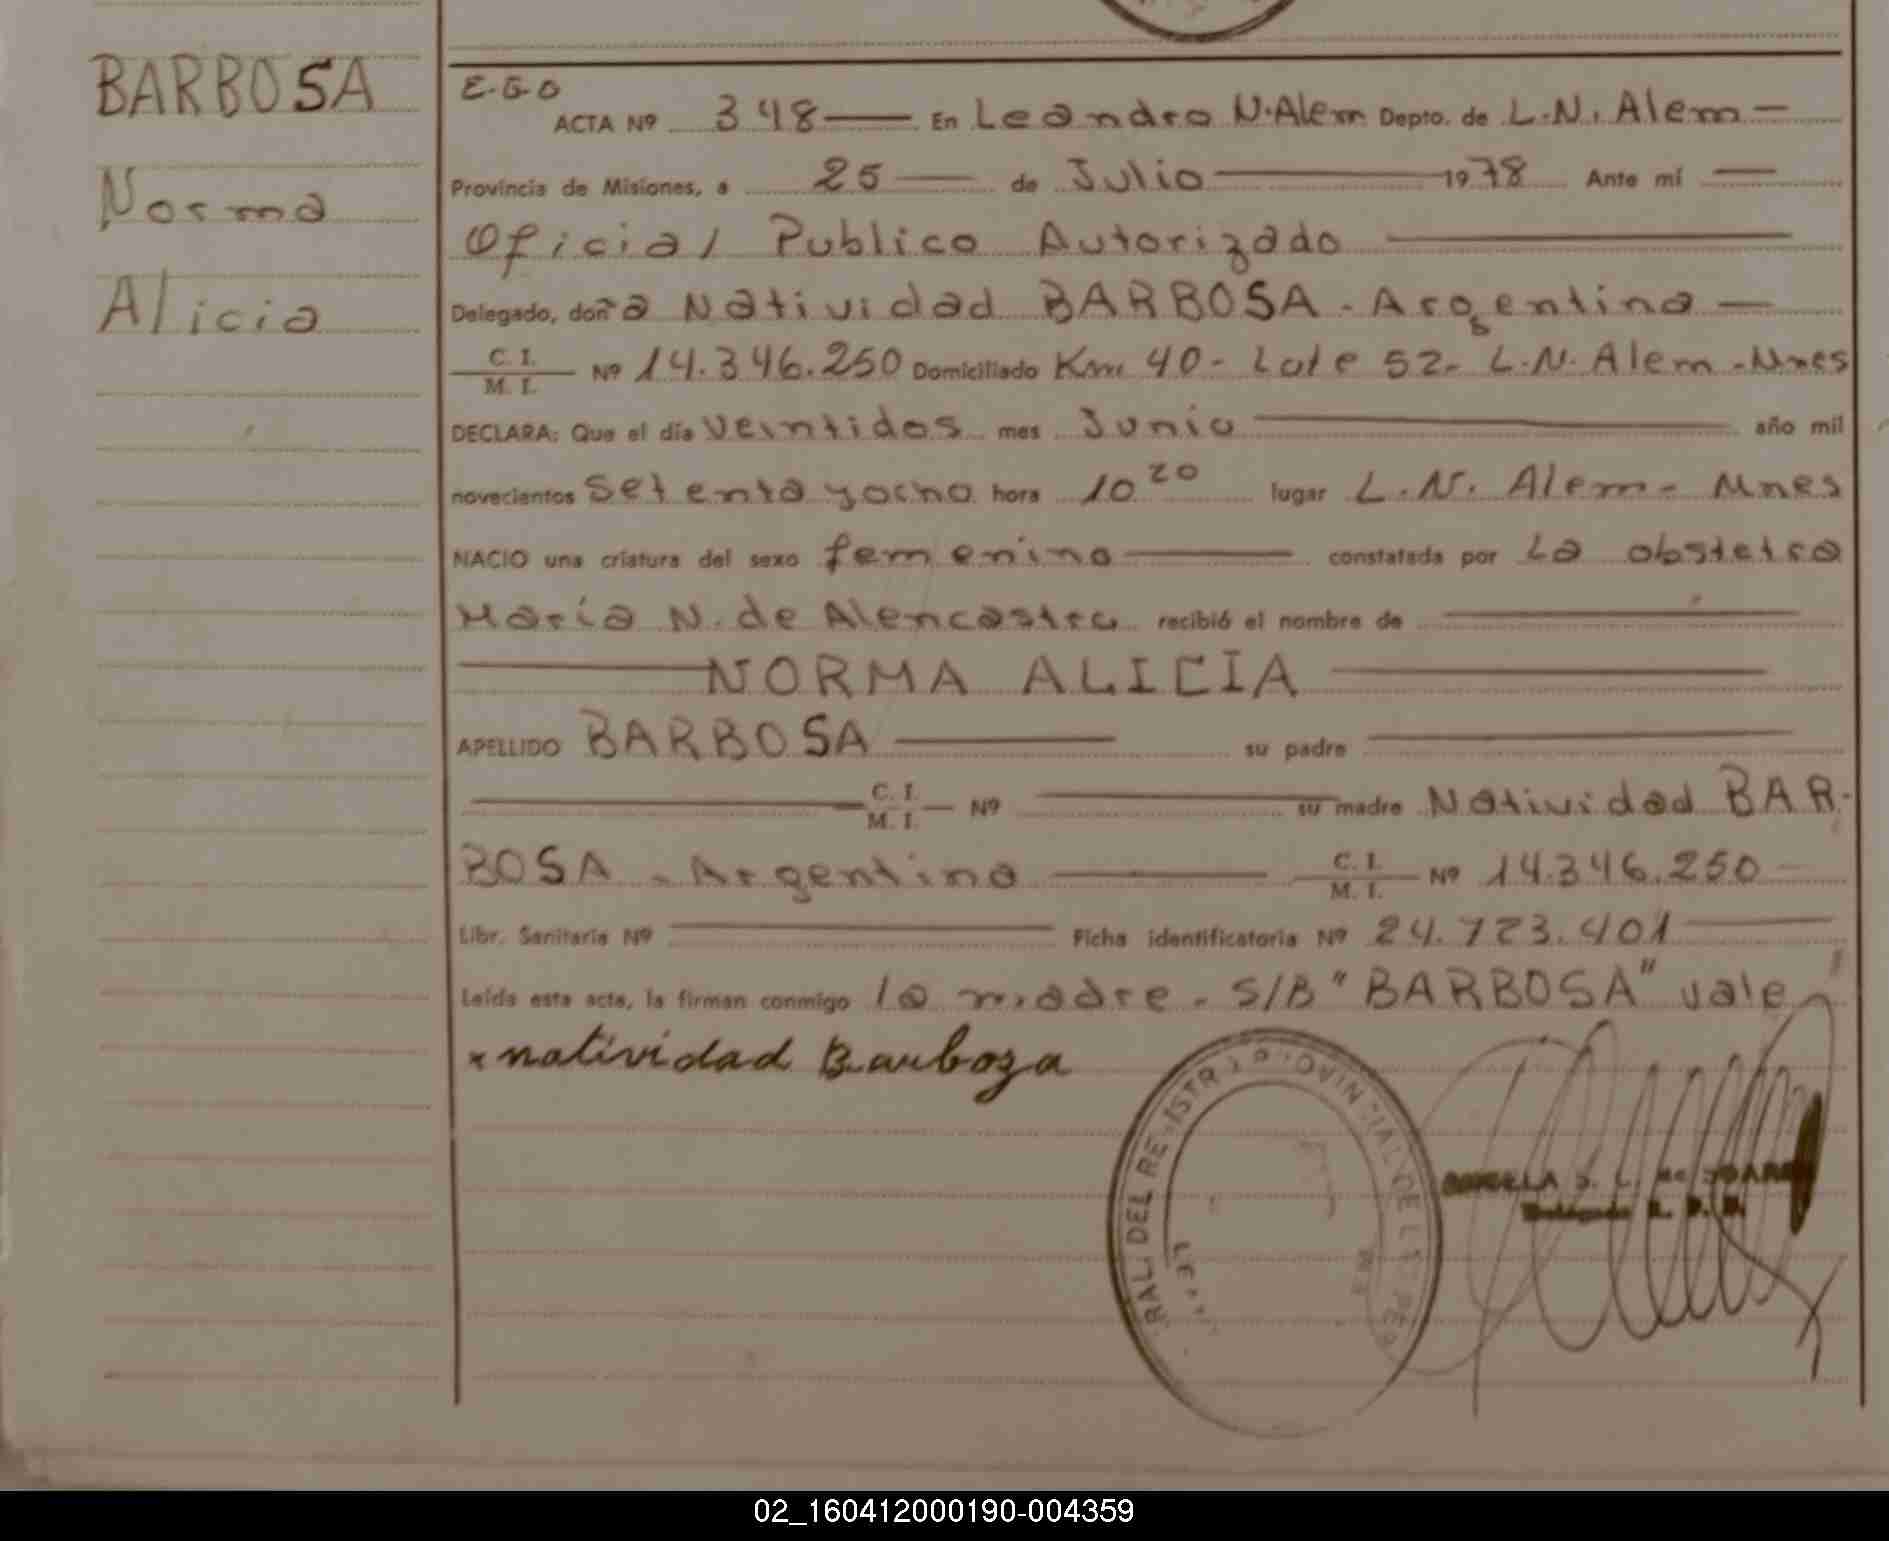 BARBOSA
Norma
Alicia
E.G.O
ACTA Nº 348 En Leandro N. Alem Depto. de L.N. Alem
Provincia de Misiones, a 25 de Julio 1978 Ante mí
Oficial Publico Autorizado
Delegado, doña Natividad BARBOSA - Argentina
C. I.
M. I. Nº 14.346.250 Domiciliado Km 40 - Lote 52 - L.N. Alem - Mnes
DECLARA: Que el día veintidos mes Junio año mil
novecientos setenta y ocho hora 10 20 lugar L.N. Alem - Mnes
NACIO una criatura del sexo femenino constatada por La obstetra
María N. de Alencastro recibió el nombre de
NORMA ALICIA
APELLIDO BARBOSA su padre
C. I.
M. I. Nº su madre Natividad BAR-
BOSA - Argentina C. I.
M. I. Nº 14.346.250
Libr. Sanitaria Nº Ficha identificatoria Nº 24.723.401
Leída esta acta, la firman conmigo la madre - S/B "BARBOSA" vale
x natividad Barboza
02_160412000190-004359